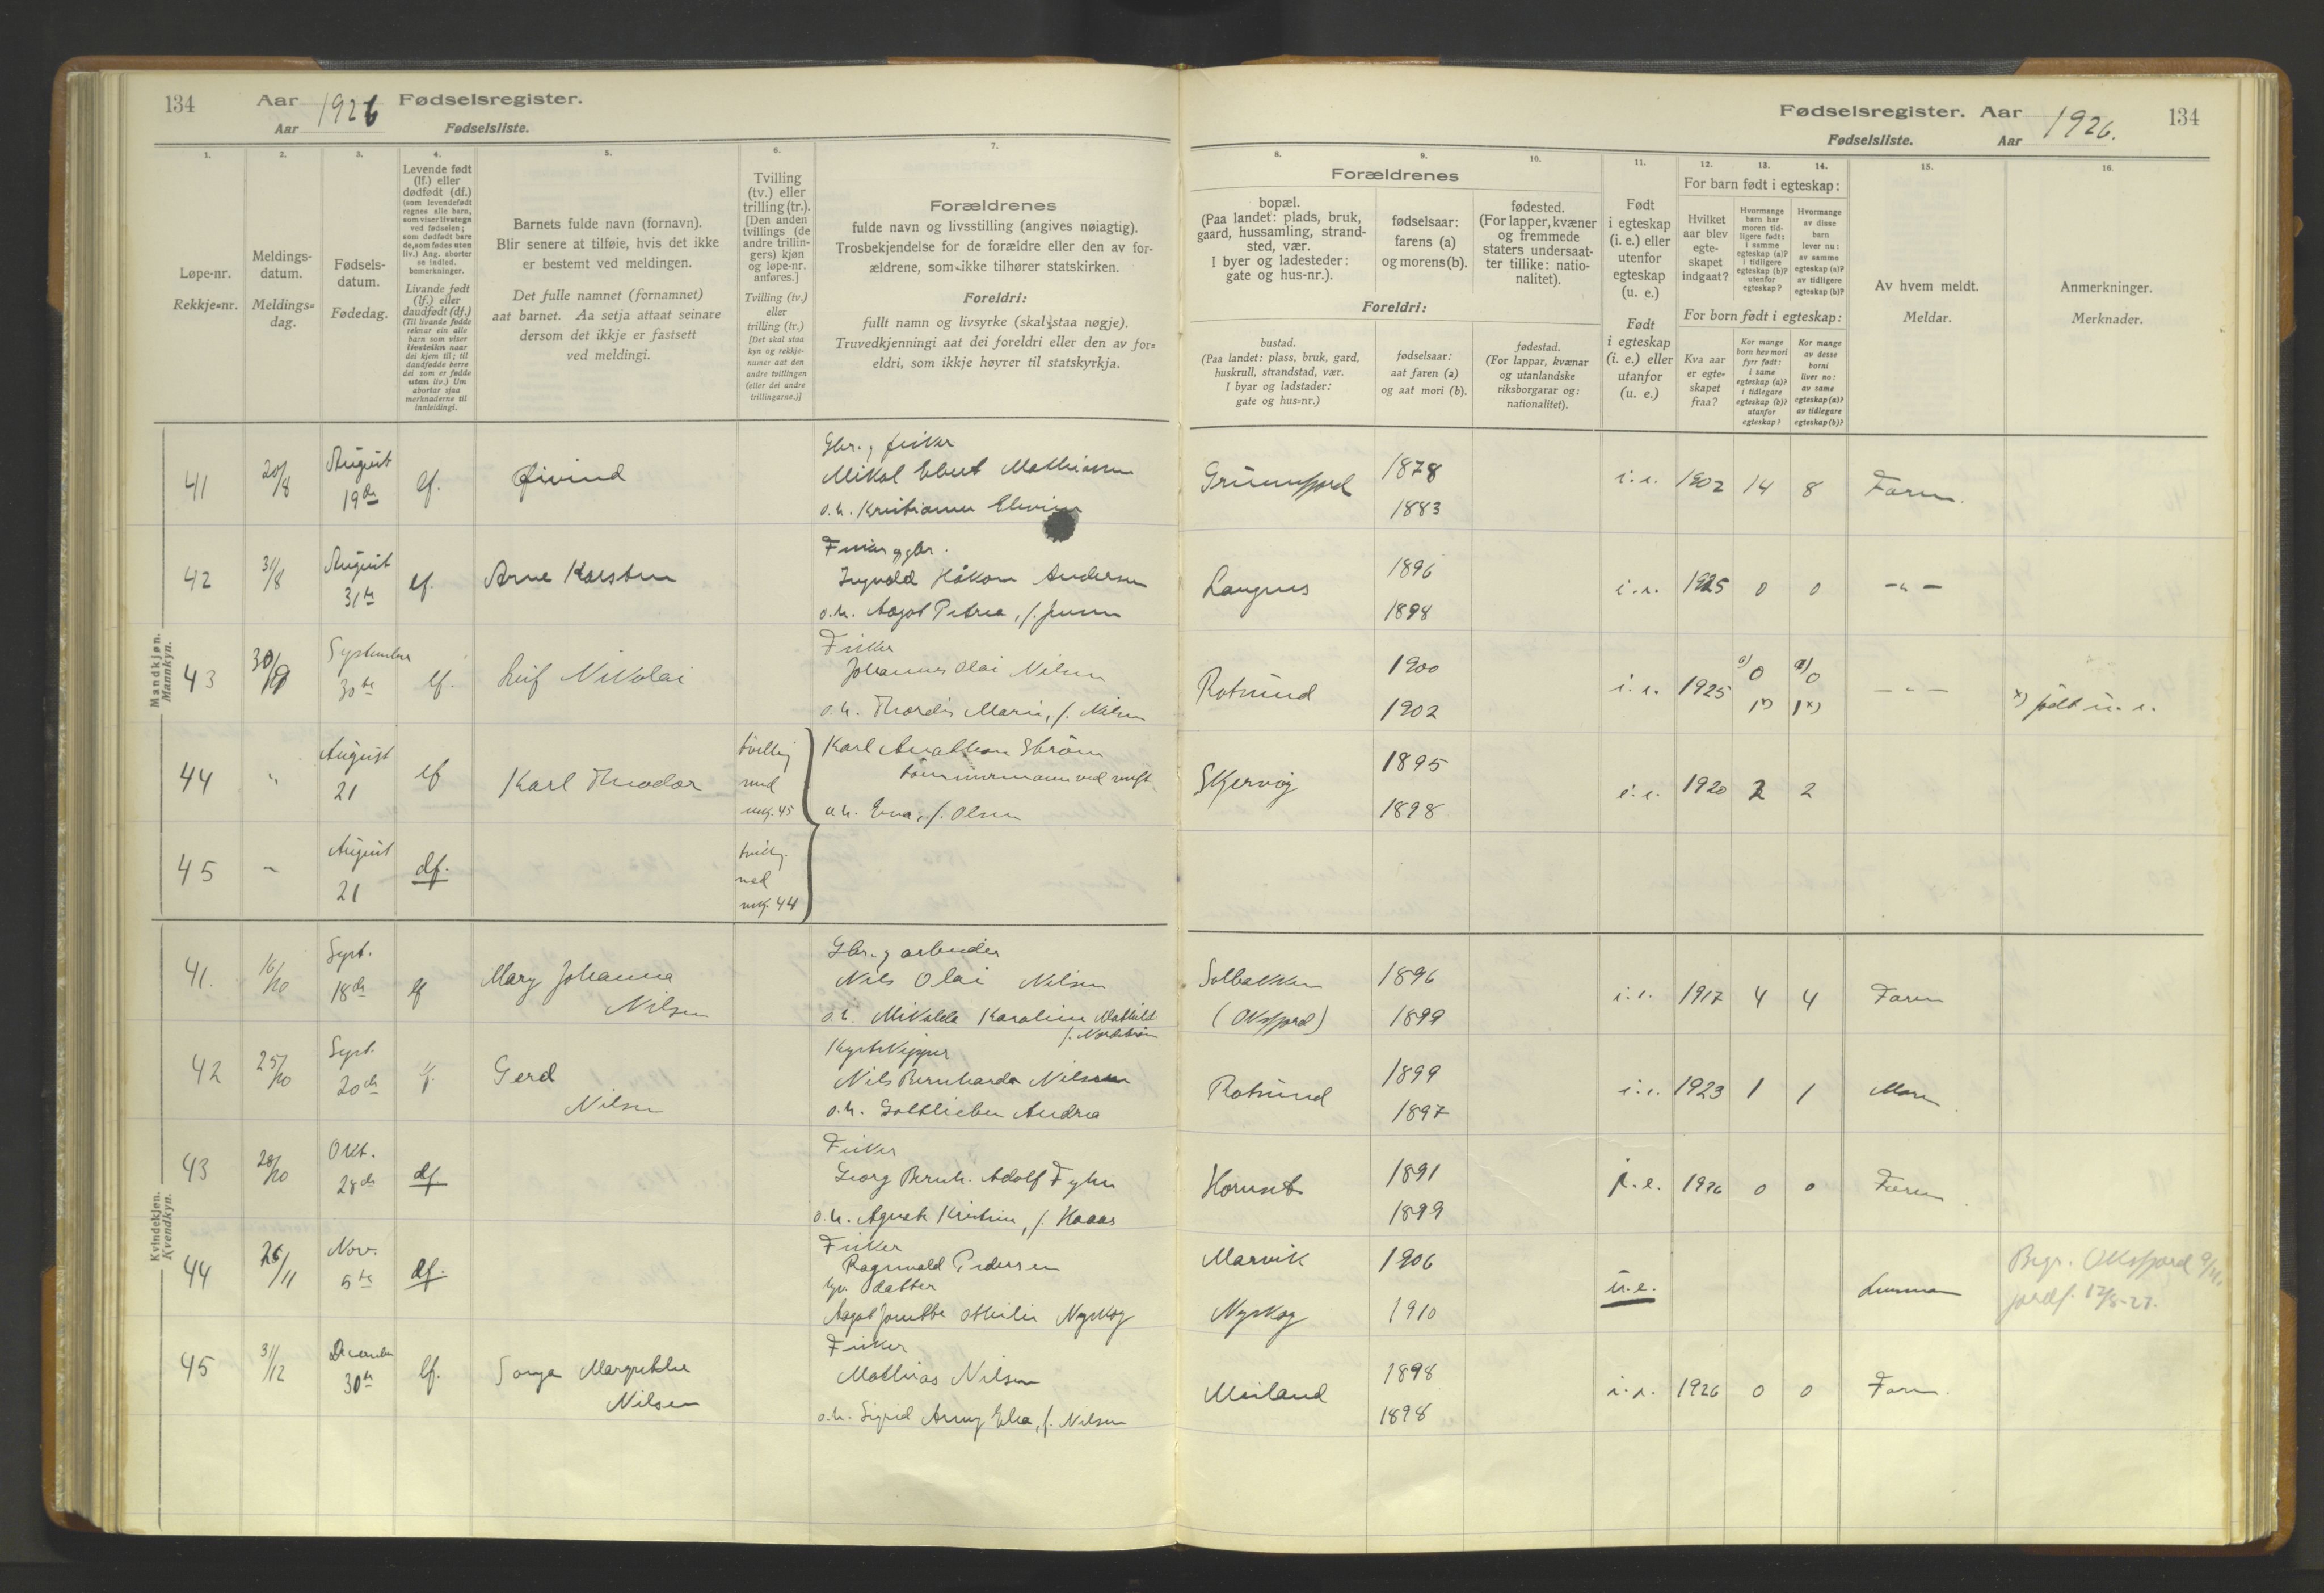 134 Aar 1926 Fødselsregister.
Aar Fødselsliste.
Fødselsregister. Aar 1926. 134
Fødselsliste. Aar
1. 2. 3. 4. 5. 6. 7.
Løpe-nr.
Rekkje=nr.
Meldings-
datum.
Meldings=
dag.
Fødsels-
datum.
Fødedag.
Levende født
(lf.) eller
dødfødt (df.)
(som levendefødt
regnes alle barn,
som viser livstegn
ved fødselen;
som dødfødt bare
de, som fødes uten
liv.) Ang. aborter
se indled.
bemerkninger.
Livande født
(lf.) eller
daudfødt (df.)
(Til livande fødde
reknar ein alle
barn som viser
livsteikn naar
dei kjem til; til
daudfødde berre
dei som er fødde
utan liv.) Um
abortar sjaa
merknaderne til
innleidingi.
Barnets fulde navn (fornavn).
Blir senere at tilføie, hvis det ikke
er bestemt ved meldingen.
Det fulle namnet (fornamnet)
aat barnet. Aa setja attaat seinare
dersom det ikkje er fastsett
ved meldingi.
Tvilling
(tv.) eller
trilling (tr.).
[Den anden
tvillings (de
andre trillin-
gers) kjøn
og løpe-nr.
anføres.]
Tvilling (tv.)
eller
trilling (tr.)
[Det skal staa
kyn og rekkje-
numer aat den
andre tvillingen
(eller dei andre
trillingarne.)]
Forældrenes
fulde navn og livsstilling (angives nøiagtig).
Trosbekjendelse for de forældre eller den av for-
ældrene, som ikke tilhører statskirken.
Foreldri:
fullt namn og livsyrke (skal staa nøgje).
Truvedkjenningi aat dei foreldri eller den av for=
eldri, som ikkje høyrer til statskyrkja.
8. 9. 10. 11. 12. 13. 14. 15. 16.
Forældrenes
bopæl.
(Paa landet: plads, bruk,
gaard, hussamling, strand-
sted, vær.
I byer og ladesteder:
gate og hus-nr.).
fødselsaar:
farens (a)
og morens (b).
fødested.
(For lapper, kvæner
og fremmede
staters undersaat-
ter tillike: natio-
nalitet).
Foreldri:
bustad.
(Paa landet: plass, bruk, gard,
huskrull, strandstad, vær.
I byar og ladstader:
gate og hus=nr.)
fødselsaar:
aat faren (a)
og aat mori (b).
fødestad.
(For lappar, kvænar
og utanlandske
riksborgarar og:
nationalitet).
Født
i egteskap
(i. e.) eller
utenfor
egteskap
(u. e.)
Født
i egteskap
(i. e.) eller
utanfor
(u. e.)
For barn født i egteskap:
Hvilket
aar blev
egte-
skapet
indgaat?
Hvormange
barn har
moren tid-
ligere født:
i samme
egteskap (a)?
i tidligere
egteskap (b)?
utenfor
egteskap?
Hvormange
av disse
barn
lever nu:
av samme
egteskap (a)?
av tidligere
egteskap (b)?
For born født i egteskap:
Kva aar
er egte=
skapet
fraa?
Kor mange
born hev mori
fyrr født:
i same
egteskap (a)?
i tidlegare
egteskap (b)?
utanfor
egteskap?
Kor mange
av desse
borni
liver no:
av same
egteskap (a)?
av tidlegare
egteskap (b)?
Av hvem meldt.
Meldar.
Anmerkninger.
Merknader.
Mandkjøn.
Mannkyn.
41 20/8 August 19de lf. Øivind
Gbr., fisker
Mikal Ebert Mathisen
o.h. Kristianna Elvine
1878
1883
i.e. 1902 14 8 Faren.
42 31/8 August 31te lf. Arne Karsten
Fisker og gbr.
Ingvald Håkon Andersen
o.h. Aagot Petrea, f. Jensen
Langnes
1896
1898
i.e. 1925 0 0 - " -
43 30/9 September 30te lf. Leif Nikolai
Fisker
Johannes Olai Nilsen
o.h. Thordis Marie, f. Nilsen
Rotsund
1900
1902
i.e. 1925 a) 0 a) 0 - " -
1x) 1x) x) født u. e.
44 " August 21 lf Karl Theodor
tvilling
med
Karl Anathon Strøm
o.h. Erna, f. Olsen
Skjervøy
1895
1898
i.e. 1920 2 2
45 - August 21 df.
tvilling
med
Kvindekjøn.
Kvendkyn.
41. 16/10 Sept. 18de lf Mary Johanna
Nilsen
Gbr. og arbeider
Nils Olai Nilsen
o.h. Mikalda Karoline Mathilde
f. Nordstrøm
Solbakken
(Oksfjord)
1896
1899
i.e. 1917 4 4 Faren
42 25/10 Sept. 20de lf. Gerd
Nilsen
Kystskipper
Nils Bernhardn Nilsen
o.h. Gottlieben Andrea
Rotsund
1899
1897
i.e. 1923 1 1 Moren
43 28/10 Okt. 28de df
Fisker
Georg Bernh. Adolf Fyhn
o.h. Agnete Kristine, f. Haaas
1891
1899
i.e. 1926 0 0 Faren
44 26/11 Nov. 5te df.
Fisker
Ragnvald Pedersen
datter
Nyskog
Marvik
Nyskog
1906
1910
u.e.
Begr. Oksfjord
jordf.
45 31/12 December 30te lf. Sonja Margrethe
Nilsen
Fisker
Mathias Nilsen
o.h. Sigrid Anny Elea, f. Nilsen
Meiland
1898
1898
i.e. 1926 0 0 Faren